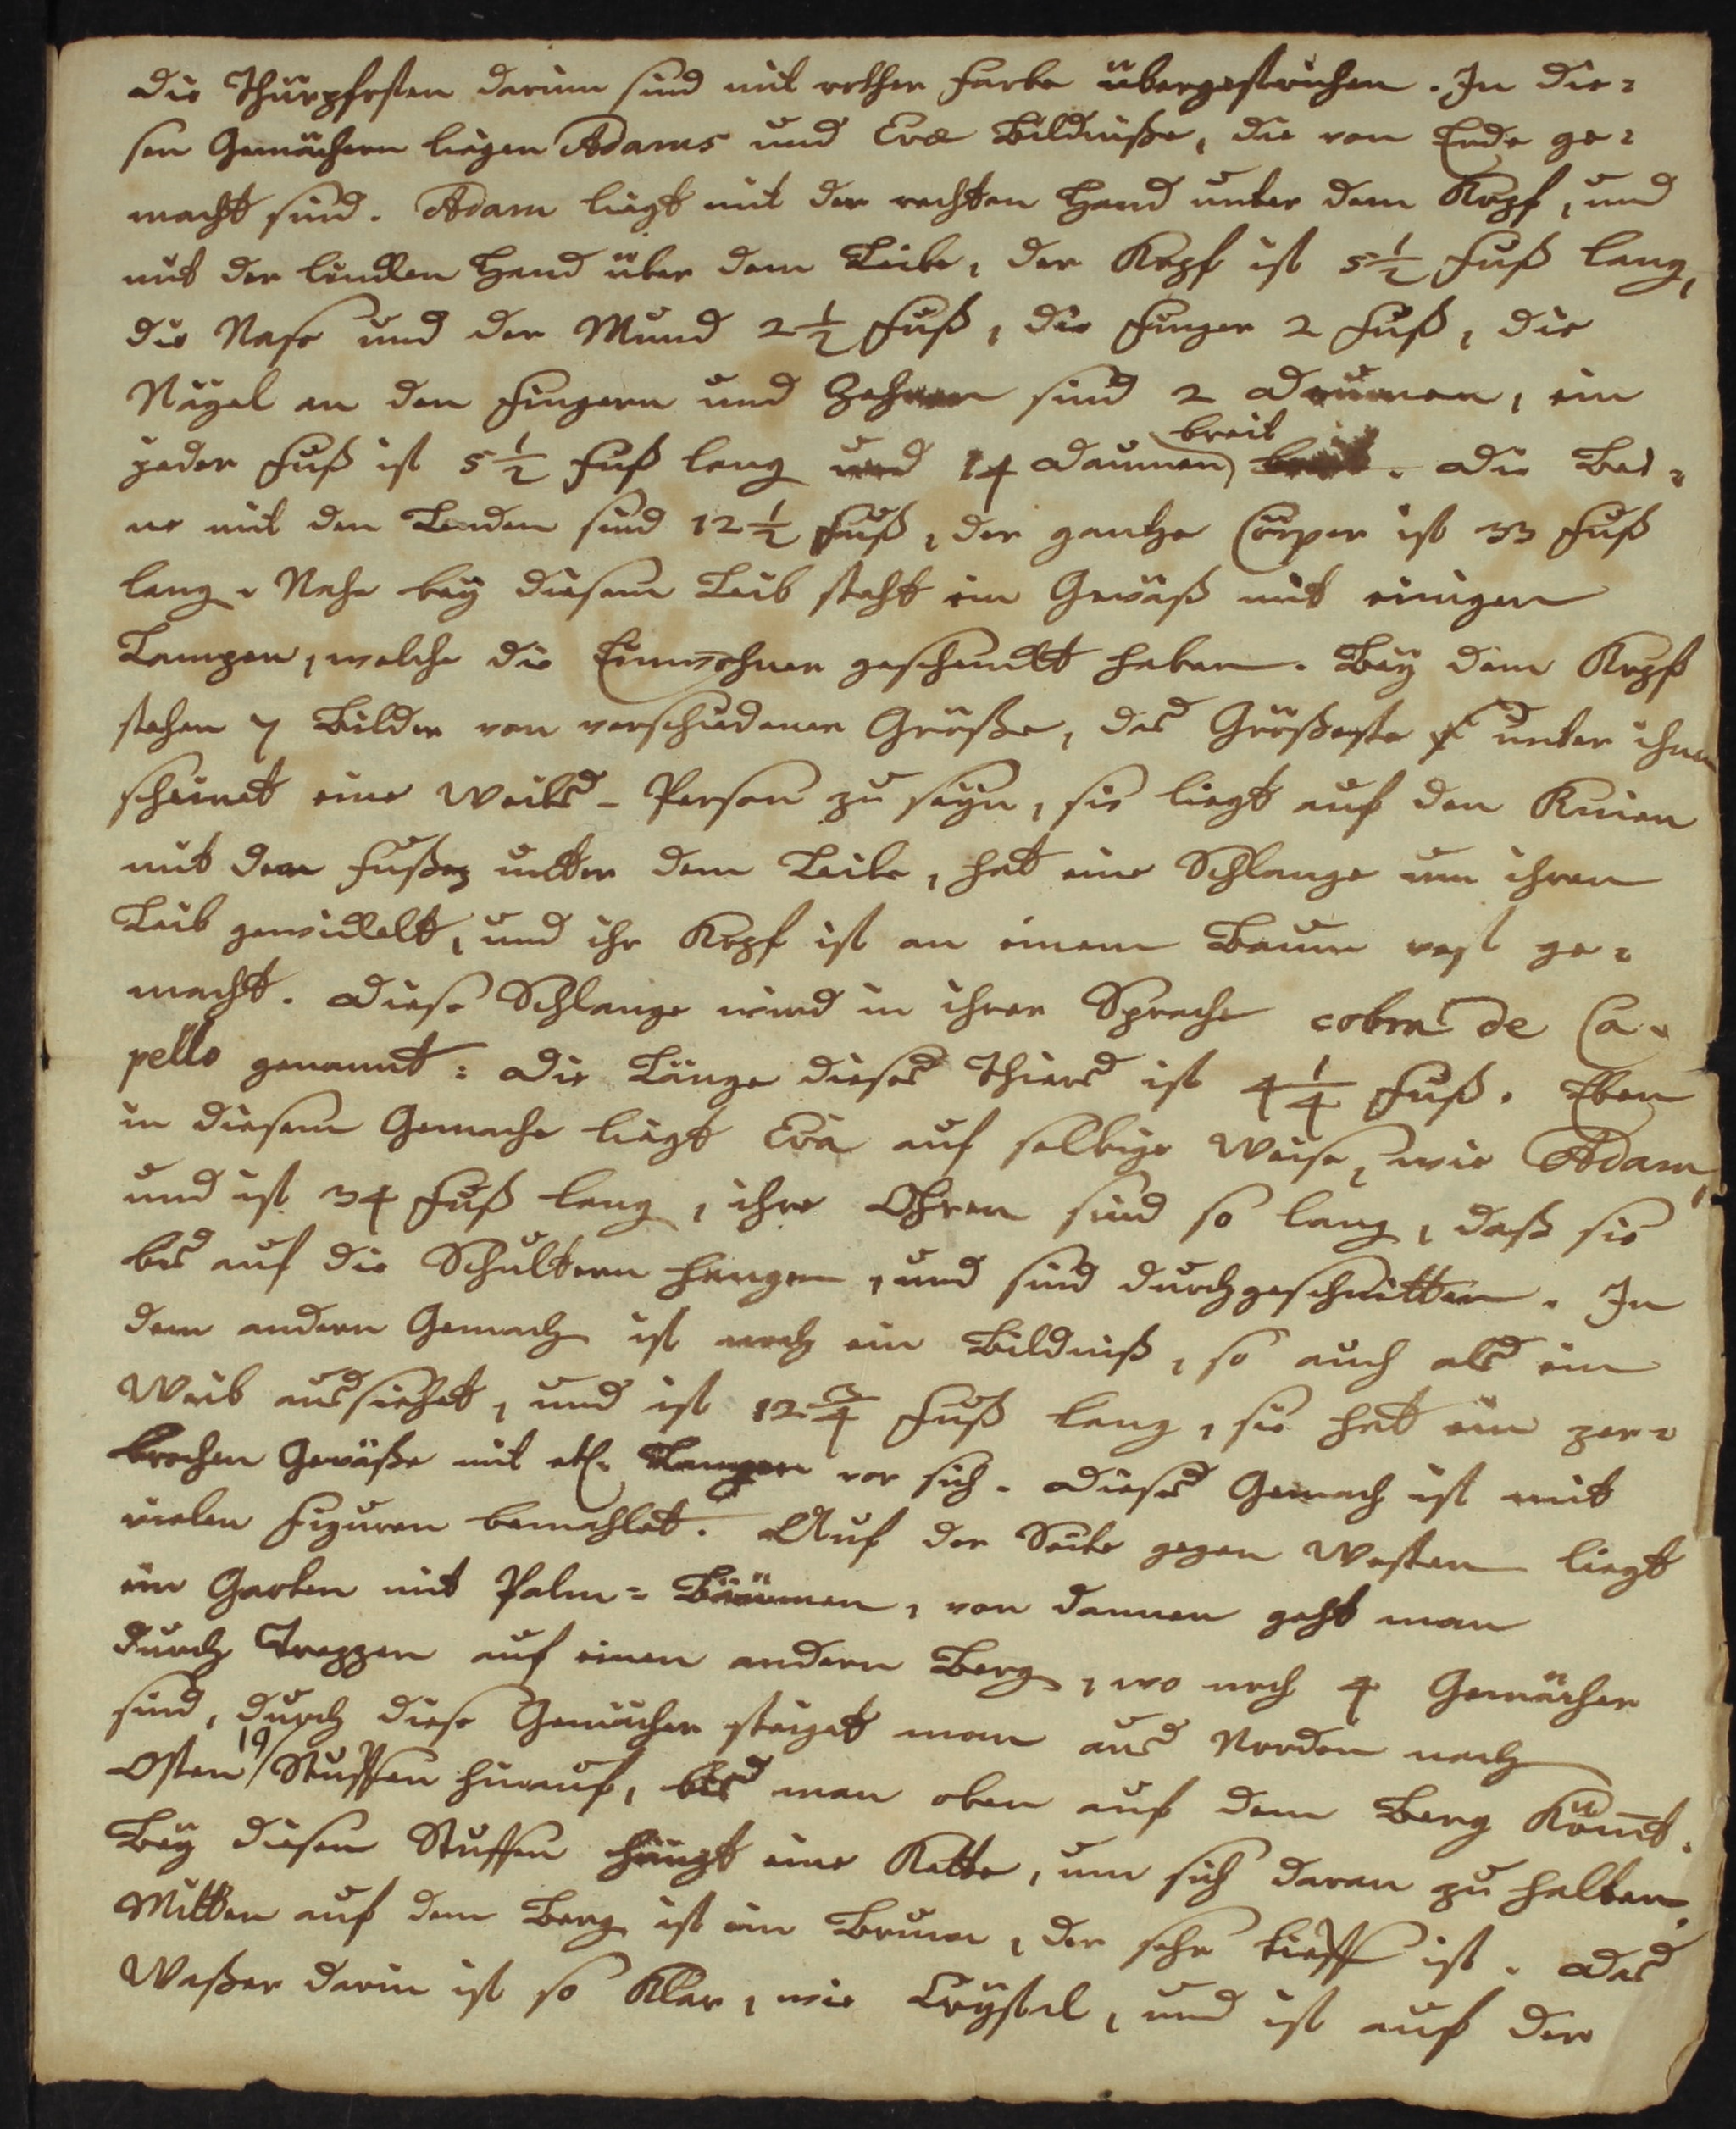 Die Thürpfosten darinn sind mit rother Farbe übergestrichen. In die-
sen Gemächern liegen Adams und Evæ Bildnüße, die von Erde ge-
macht sind. Adam liegt mit der rechten Hand unter dem Kopf, und
mit der lincken Hand über dem Leibe, der Kopf ist 5 1/2 Fuß lang,
die Nase und der Mund 2 1/2 Fuß, die Finger 2 Fuß, die
Nägel an den Fingern und Zehen sind 2 Daumen, ein
jeder Fuß ist 5 1/2 Fuß lang und 14 Daumen breit. Die Bei-
ne mit den Lenden sind 12 1/2 Fuß, der gantze Cörper ist 33 Fuß
lang. Nahe bey diesem Leib steht ein Gewäß mit einigen
Lampen, welche die Einwohner geschenckt haben. Bey dem Kopf
stehen 7 Bilder von verschiedener Größe, das Größeste unter ihnen
scheinet eine Weibs-Person zu seyn, sie liegt auf den Knien
mit den Fußen unter dem Leibe, hat eine Schlange um ihren
Leib gewickelt, und ihr Kopf ist an einem Baum vest ge-
macht. Diese Schlange wird in ihrer Sprache cobra de Ca-
pello genannt: Die Länge dieses Thiers ist 4 1/4 Fuß. Eben
in diesem Gemache liegt Eva auf selbige Weise, wie Adam,
und ist 34 Fuß lang, ihre Ohren sind so lang, daß sie
bis auf die Schultern hangen, und sind durchgeschnitten. In
dem andern Gemach ist noch ein Bildniß, so auch als ein
Weib aussiehet, und ist 12 3/4 Fuß lang, sie hat ein zer-
brochen Gewäße mit etl. Lampen vor sich. Dieses Gemach ist mit
vielen Figuren bemahlet. Auf der Seite gegen Westen liegt
ein Garten mit Palm-Bäumen, von dannen geht man
durch Treppen auf einen andern Berg, wo noch 4 Gemächer
sind, durch diese Gemächer steiget man aus Norden nach
Osten 19 Stuffen hinauf, bis man oben auf dem Berg kömt.
Bey diesen Stuffen hängt eine Kette, um sich daran zu halten.
Mitten auf dem Berg ist ein Brunn, der sehr tieff ist. Das
Waßer darin ist so klar, wie Crystal, und ist auf der